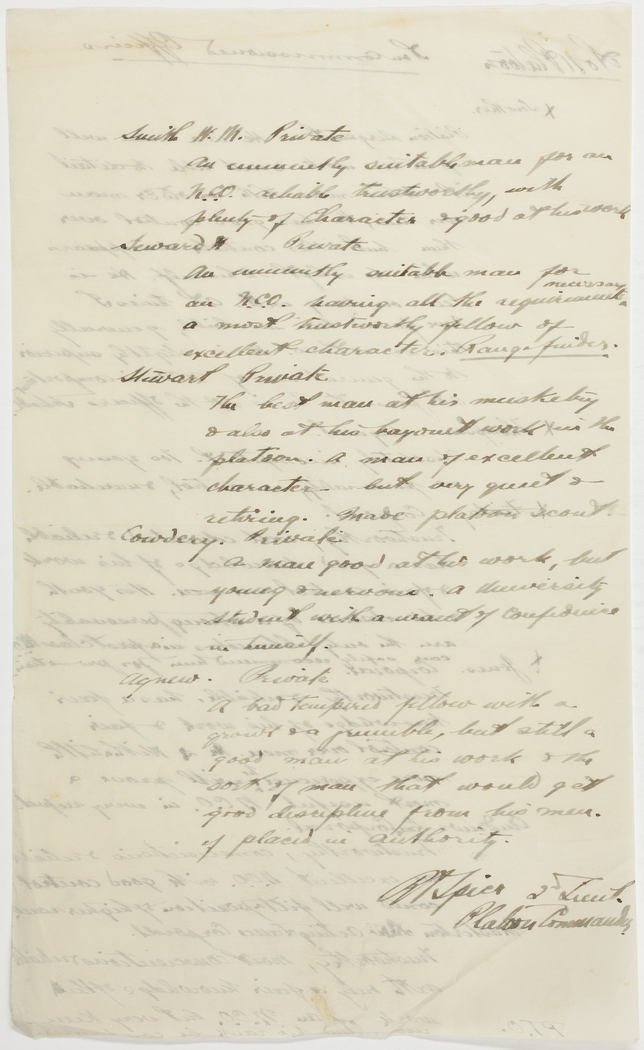 Smith W. M. Private
An eminently suitable man for an
N.C.O. reliable trustworthy, with
plenty of Character & good at his work
Seward H Private
An eminently suitable man for
an N.C.O. having all the necessary requirements
a most trustworthy fellow of
excellent character. Range finder.
Stewart Private
The best man at his musketry
& also at his bayonet work in the
platoon. A man of excellent
character - but very quiet &
retiring. Made platoon scout.
Cowdery. Private
A man good at his work, but
young & nervous. A University
student with a want of Confidence
in himself.
Agnew. Private
A bad tempered fellow with a
growl & a grumble, but still a
good man at his work & the
sort of man that would get
good discipline from his men.
if placed in authority.
Spier 2nd Lieut.
Platoon Commander